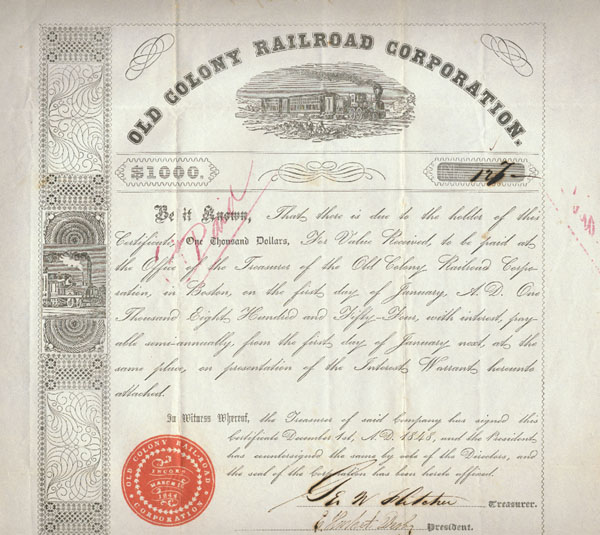 OLD COLONY RAILROAD CORPORATION.
$1000.
Paid
Be it Known, That there is due to the holder of this
Certificate, One Thousand Dollars, For Value Received, to be paid at
the Office of the Treasurer of the Old Colony Railroad Corpo-
ration, in Boston, on the first day of January, A.D. One
Thousand Eight Hundred and Fifty-Four, with interest, pay-
able semi-annually, from the first day of January next, at the
same place, on presentation of the Interest Warrant hereunto
attached.
In Witness Whereof, the Treasurer of said Company has signed this
Certificate December 1st, A.D. 1848, and the President
has countersigned the same by vote of the Directors, and
the seal of the Corporation has been hereto affixed.
OLD COLONY RAIL-ROAD
CORPORATION
INCORP.
MARCH
1844
Treasurer.
President.